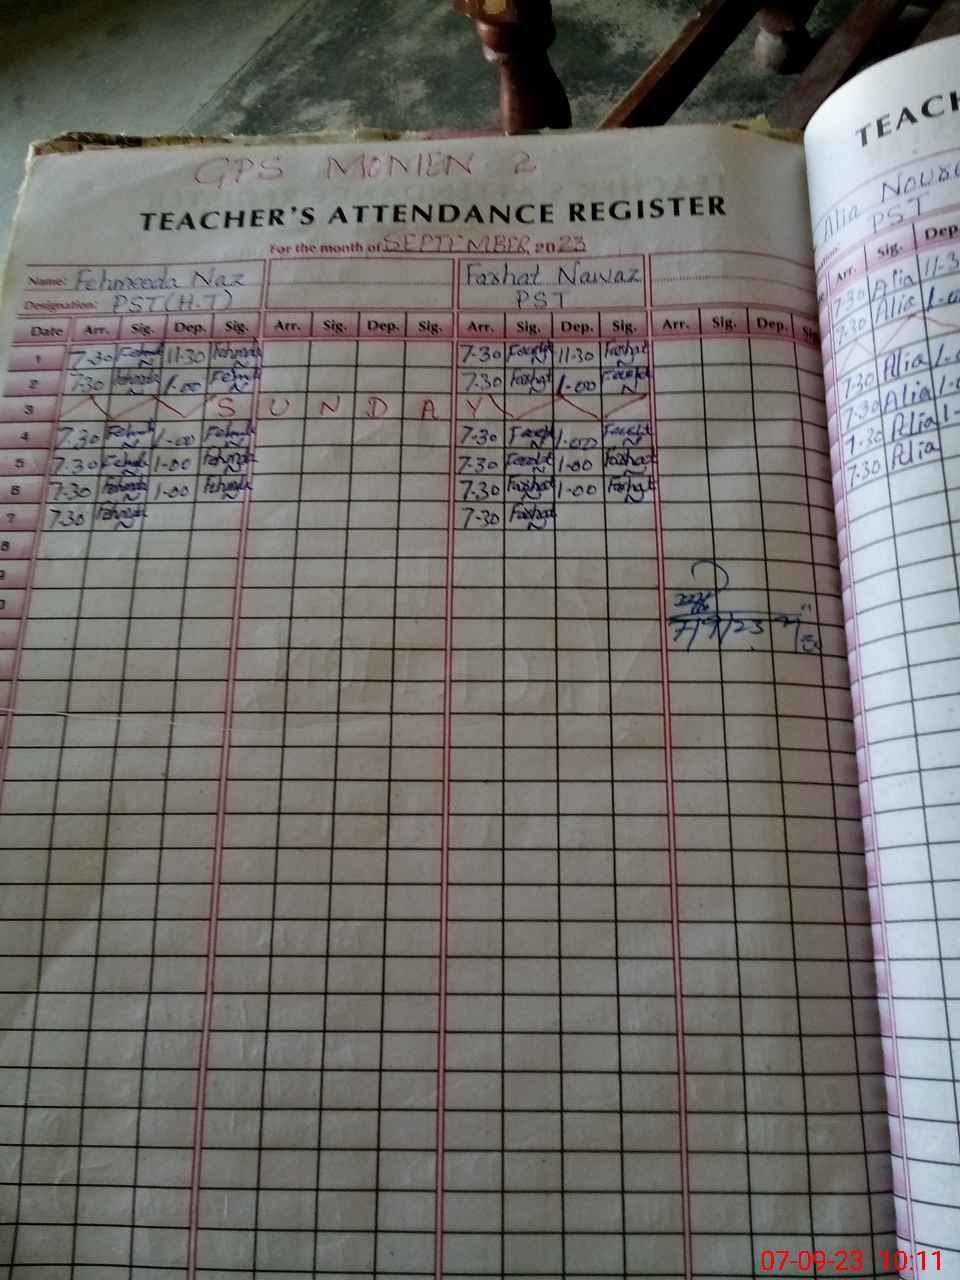 GPS MOMEN 2
TEACHER'S ATTENDANCE REGISTER
For the month of SEPTEMBER, 2023
Name: Fehmeeda Naz Farhat Nawaz
Designation: PST (H.T) PST
Date Arr. Sig. Dep. Sig. Arr. Sig. Dep. Sig. Arr. Sig. Dep. Sig. Arr. Sig. Dep.
1 7-30 11-30 Fehmeeda 7-30 Farhat 11-30 Farhat
2 7-30 Fehmeeda 1-00 7-30 Farhat 1-00 Farhat
3 S U N D A Y
4 7-30 1-00 7-30 Farhat 1-00 Farhat
5 7-30 1-00 Fehmeeda 7-30 Farhat 1-00 Farhat
6 7-30 Fehmeeda 1-00 Fehmeeda 7-30 Farhat 1-00 Farhat
7 7-30 Fehmeeda 7-30 Farhat
8
7/9/23
TEACH
Alia
PST
Arr. Sig. Dep.
7-30 Alia 11-3
7-30 Alia
7-30 Alia
7-30 Alia
7-30 Alia
7-30 Alia
07-09-23 10:11